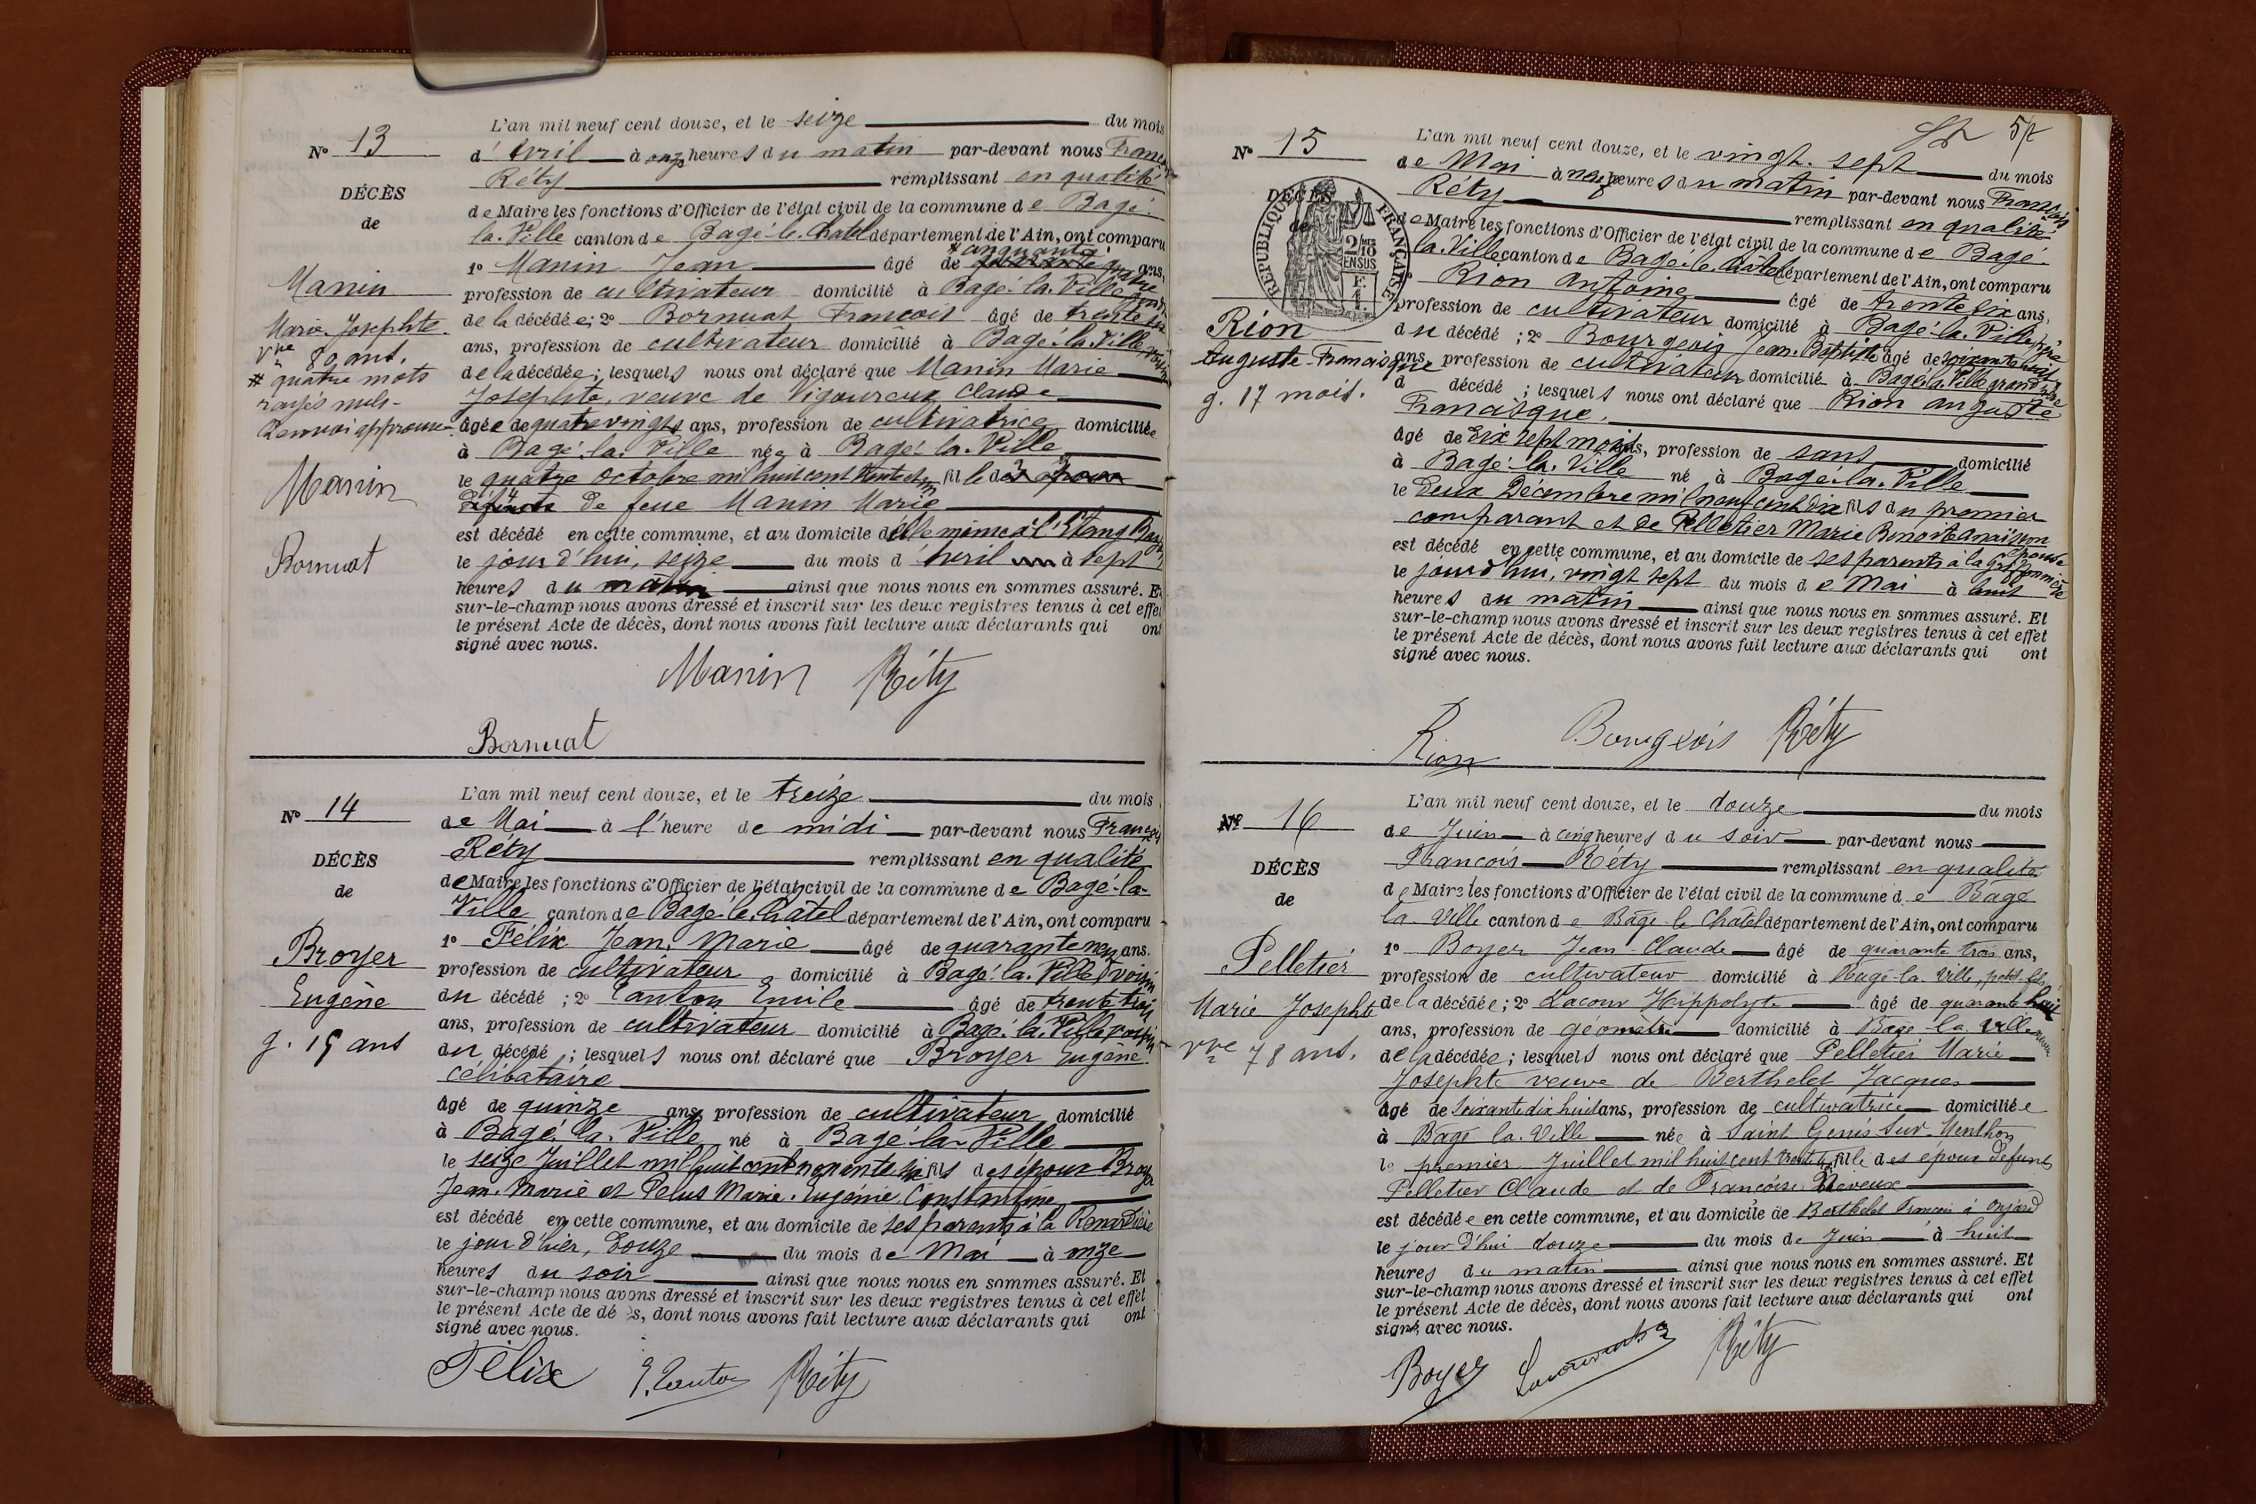 N° 13
DÉCÈS
de
Manin
Marie Josephte
Vve 80 ans.
# quatre mots
rayés nuls.
Renvoi approuvé
Manin
Bornuat
L'an mil neuf cent douze, et le seize du mois
d'Avril à onze heures du matin par-devant nous François
Réty remplissant en qualité
de Maire les fonctions d'Officier de l'état civil de la commune de Bagé-
la-Ville canton de Bagé-le-Châtel département de l'Ain, ont comparu
# cinquante quatre
1° Manin Jean âgé de ans,
profession de cultivateur domicilié à Bagé-la-Ville
de la décédée; 2° Bornuat François âgé de trente six
ans, profession de cultivateur domicilié à Bagé-la-Ville voisin
de la décédée; lesquels nous ont déclaré que Manin Marie
Josephte, veuve de Vigoureux Claude
âgée de quatre vingts ans, profession de cultivatrice domiciliée
à Bagé-la-Ville née à Bagé-la-Ville
le quatre octobre mil huit cent trente et un fille de
de feue Manin Marie
est décédé en cette commune, et au domicile d'elle même à l'Etang
le jour d'hui, seize du mois d'Avril à sept
heures du matin ainsi que nous nous en sommes assuré. Et
sur-le-champ nous avons dressé et inscrit sur les deux registres tenus à cet effet
le présent Acte de décès, dont nous avons fait lecture aux déclarants qui ont
signé avec nous.
Manin Réty
Bornuat
N° 14
DÉCÈS
de
Broyer
Eugène
g. 15 ans
L'an mil neuf cent douze, et le treize du mois
de Mai à l'heure de midi par-devant nous François
Réty remplissant en qualité
de Maire les fonctions d'Officier de l'état civil de la commune de Bagé-la-
Ville canton de Bagé-le-Châtel département de l'Ain, ont comparu
1° Félix Jean Marie âgé de quarante neuf ans.
profession de cultivateur domicilié à Bagé-la-Ville, voisin
du décédé; 2° Canton Emile âgé de trente trois
ans, profession de cultivateur domicilié à Bagé-la-Ville voisin
du décédé; lesquels nous ont déclaré que Broyer Eugène
célibataire
âgé de quinze ans, profession de cultivateur domicilié
à Bagé-la-Ville né à Bagé-la-Ville
le seize Juillet mil huit cent nonante six fils des époux Broyer
Jean-Marie et Pelus Marie-Eugénie Constantine
est décédé en cette commune, et au domicile de ses parents à la Renardière
le jour d'hier, douze du mois de Mai à onze
heures du soir ainsi que nous nous en sommes assuré. Et
sur-le-champ nous avons dressé et inscrit sur les deux registres tenus à cet effet
le présent Acte de décès, dont nous avons fait lecture aux déclarants qui ont
signé avec nous.
Félix E. Canton Réty
52
N° 15
DÉCÈS
de
RÉPUBLIQUE FRANÇAISE
2/10 EN SUS
Rion
Auguste-Francisque
g. 17 mois.
L'an mil neuf cent douze, et le vingt-sept du mois
de Mai à neuf heures du matin par-devant nous François
Réty remplissant en qualité
de Maire les fonctions d'Officier de l'état civil de la commune de Bagé-
la-Ville canton de Bagé-le-Châtel département de l'Ain, ont comparu
Rion Antoine âgé de trente six ans,
profession de cultivateur domicilié à Bagé-la-Ville père
du décédé; 2° Bourgeois Jean-Baptiste âgé de soixante huit
ans, profession de cultivateur domicilié à Bagé-la-Ville grand père
d décédé; lesquels nous ont déclaré que Rion Auguste
Francisque,
âgé de dix sept mois, profession de sans domicilié
à Bagé-la-Ville né à Bagé-la-Ville
le deux Décembre mil neuf cent dix fils du premier
comparant et de Pelletier Marie Benoite Anaïs son
épouse
est décédé en cette commune, et au domicile de ses parents à la
le jour d'hui, vingt sept du mois de Mai à huit
heures du matin ainsi que nous nous en sommes assuré. Et
sur-le-champ nous avons dressé et inscrit sur les deux registres tenus à cet effet
le présent Acte de décès, dont nous avons fait lecture aux déclarants qui ont
signé avec nous.
Rion Bourgeois Réty
N° 16
DÉCÈS
de
Pelletier
Marie Josephte
vve 78 ans.
L'an mil neuf cent douze, et le douze du mois
de Juin à cinq heures du soir par-devant nous
François Réty remplissant en qualité
de Maire les fonctions d'Officier de l'état civil de la commune de Bagé
la Ville canton de Bagé le Châtel département de l'Ain, ont comparu
1° Boyer Jean-Claude âgé de quarante trois ans,
profession de cultivateur domicilié à Bagé la Ville, petit fils
de la décédée; 2° Lacour Hippolyte âgé de quarante huit
ans, profession de géomètre domicilié à Bagé la Ville
de la décédée; lesquels nous ont déclaré que Pelletier Marie
Josephte veuve de Berthelet Jacques
âgé de soixante dix huit ans, profession de cultivatrice domiciliée
à Bagé la Ville née à Saint Genis sur Menthon
le premier Juillet mil huit cent trente fille des époux défunts
Pelletier Claude et de Françoise Neveux
est décédée en cette commune, et au domicile de Berthelet François à Onjard
le jour d'hui douze du mois de Juin à huit
heures du matin ainsi que nous nous en sommes assuré. Et
sur-le-champ nous avons dressé et inscrit sur les deux registres tenus à cet effet
le présent Acte de décès, dont nous avons fait lecture aux déclarants qui ont
signé avec nous.
Boyer Réty